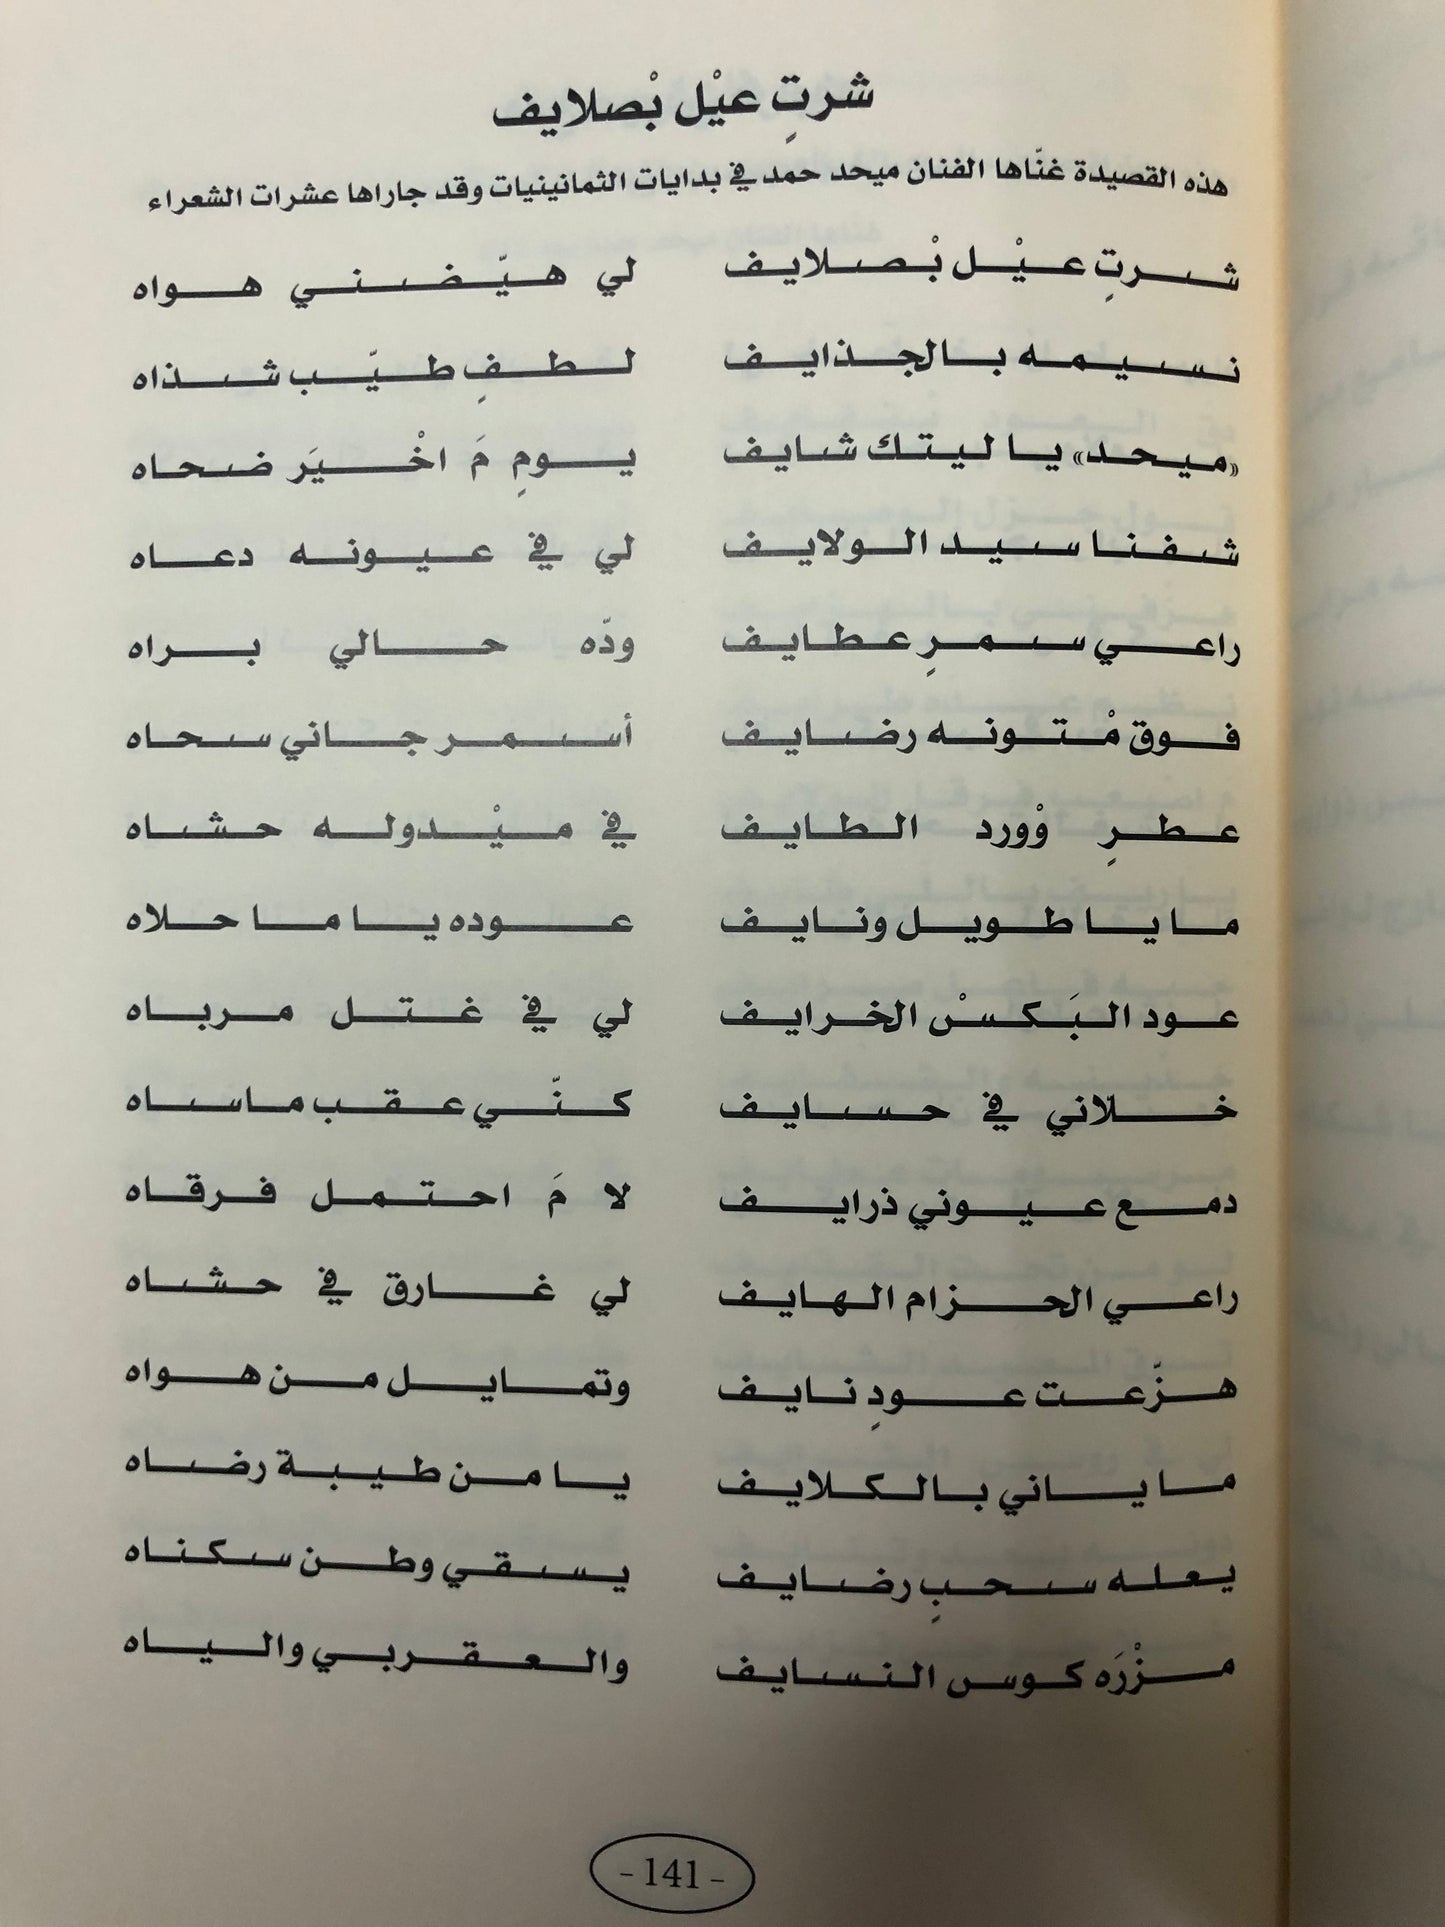 شرتٍ عيْل بْصلايف
هذه القصيدة غنّاها الفنان ميحد حمد في بدايات الثمانينيات وقد جاراها عشرات الشعراء
شرتٍ عيْل بْصلايف لي هيّضني هواه
نسيمه بالجذايف لطفٍ طيّب شذاه
«ميحد» يا ليتك شايف يومٍ مَ اخْيَر ضحاه
شفنا سيد الولايف لي في عيونه دعاه
راعي سمرٍ عطايف ودّه حالي براه
فوق مْتونه رضايف أسمر جاني سحاه
عطرٍ وْورد الطايف في ميْدوله حشاه
ما يا طويل ونايف عوده يا ما حلاه
عود البَكسْ الخرايف لي في غتل مرباه
خلاني في حسايف كنّي عقب ماساه
دمع عيوني ذرايف لا مَ احتمل فرقاه
راعي الحزام الهايف لي غارق في حشاه
هزّعت عودٍ نايف وتمايل من هواه
ما ياني بالكلايف يا من طيبة رضاه
يعله سحبٍ رضايف يسقي وطن سكناه
مزْرَه كوس النسايف والعقربي والياه
- 141 -